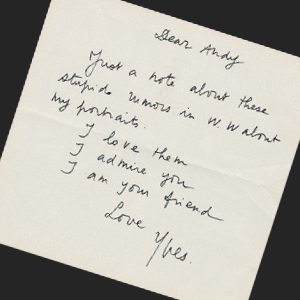 Dear Andy
Just a note about these
stupide rumors in W.W about
my portraits.
I love them
I admire you
I am your friend
Love
Yves.